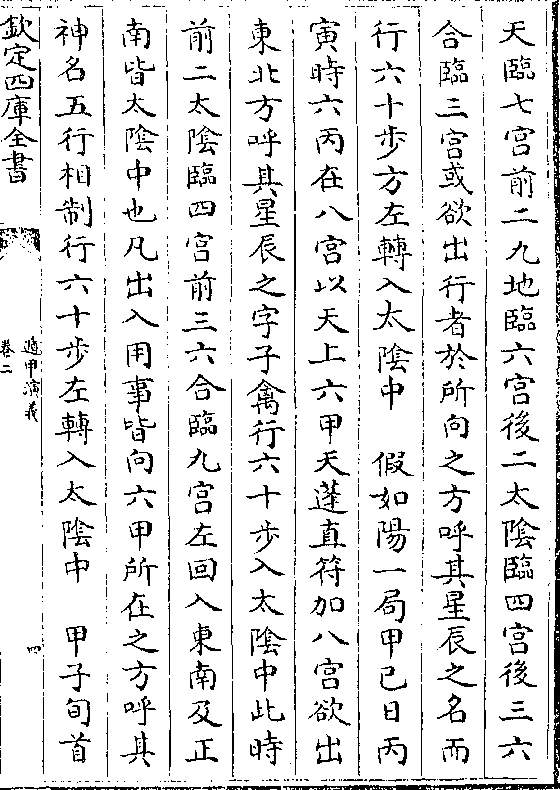 天臨七宫前二九地臨六宫後二太陰臨四宫後三六
合臨三宫或欲出行者於所向之方呼其星辰之名而
行六十步方左轉入太陰中　假如陽一局甲己日丙
寅時六丙在八宫以天上六甲天蓬直符加八宫欲出
東北方呼其星辰之字子禽行六十步入太陰中此時
前二太陰臨四宫前三六合臨九宫左回入東南及正
南皆太陰中也凡出入用事皆向六甲所在之方呼其
神名五行相制行六十步左轉入太陰中　甲子旬首
欽定四庫全書
遁甲演義
卷二
四